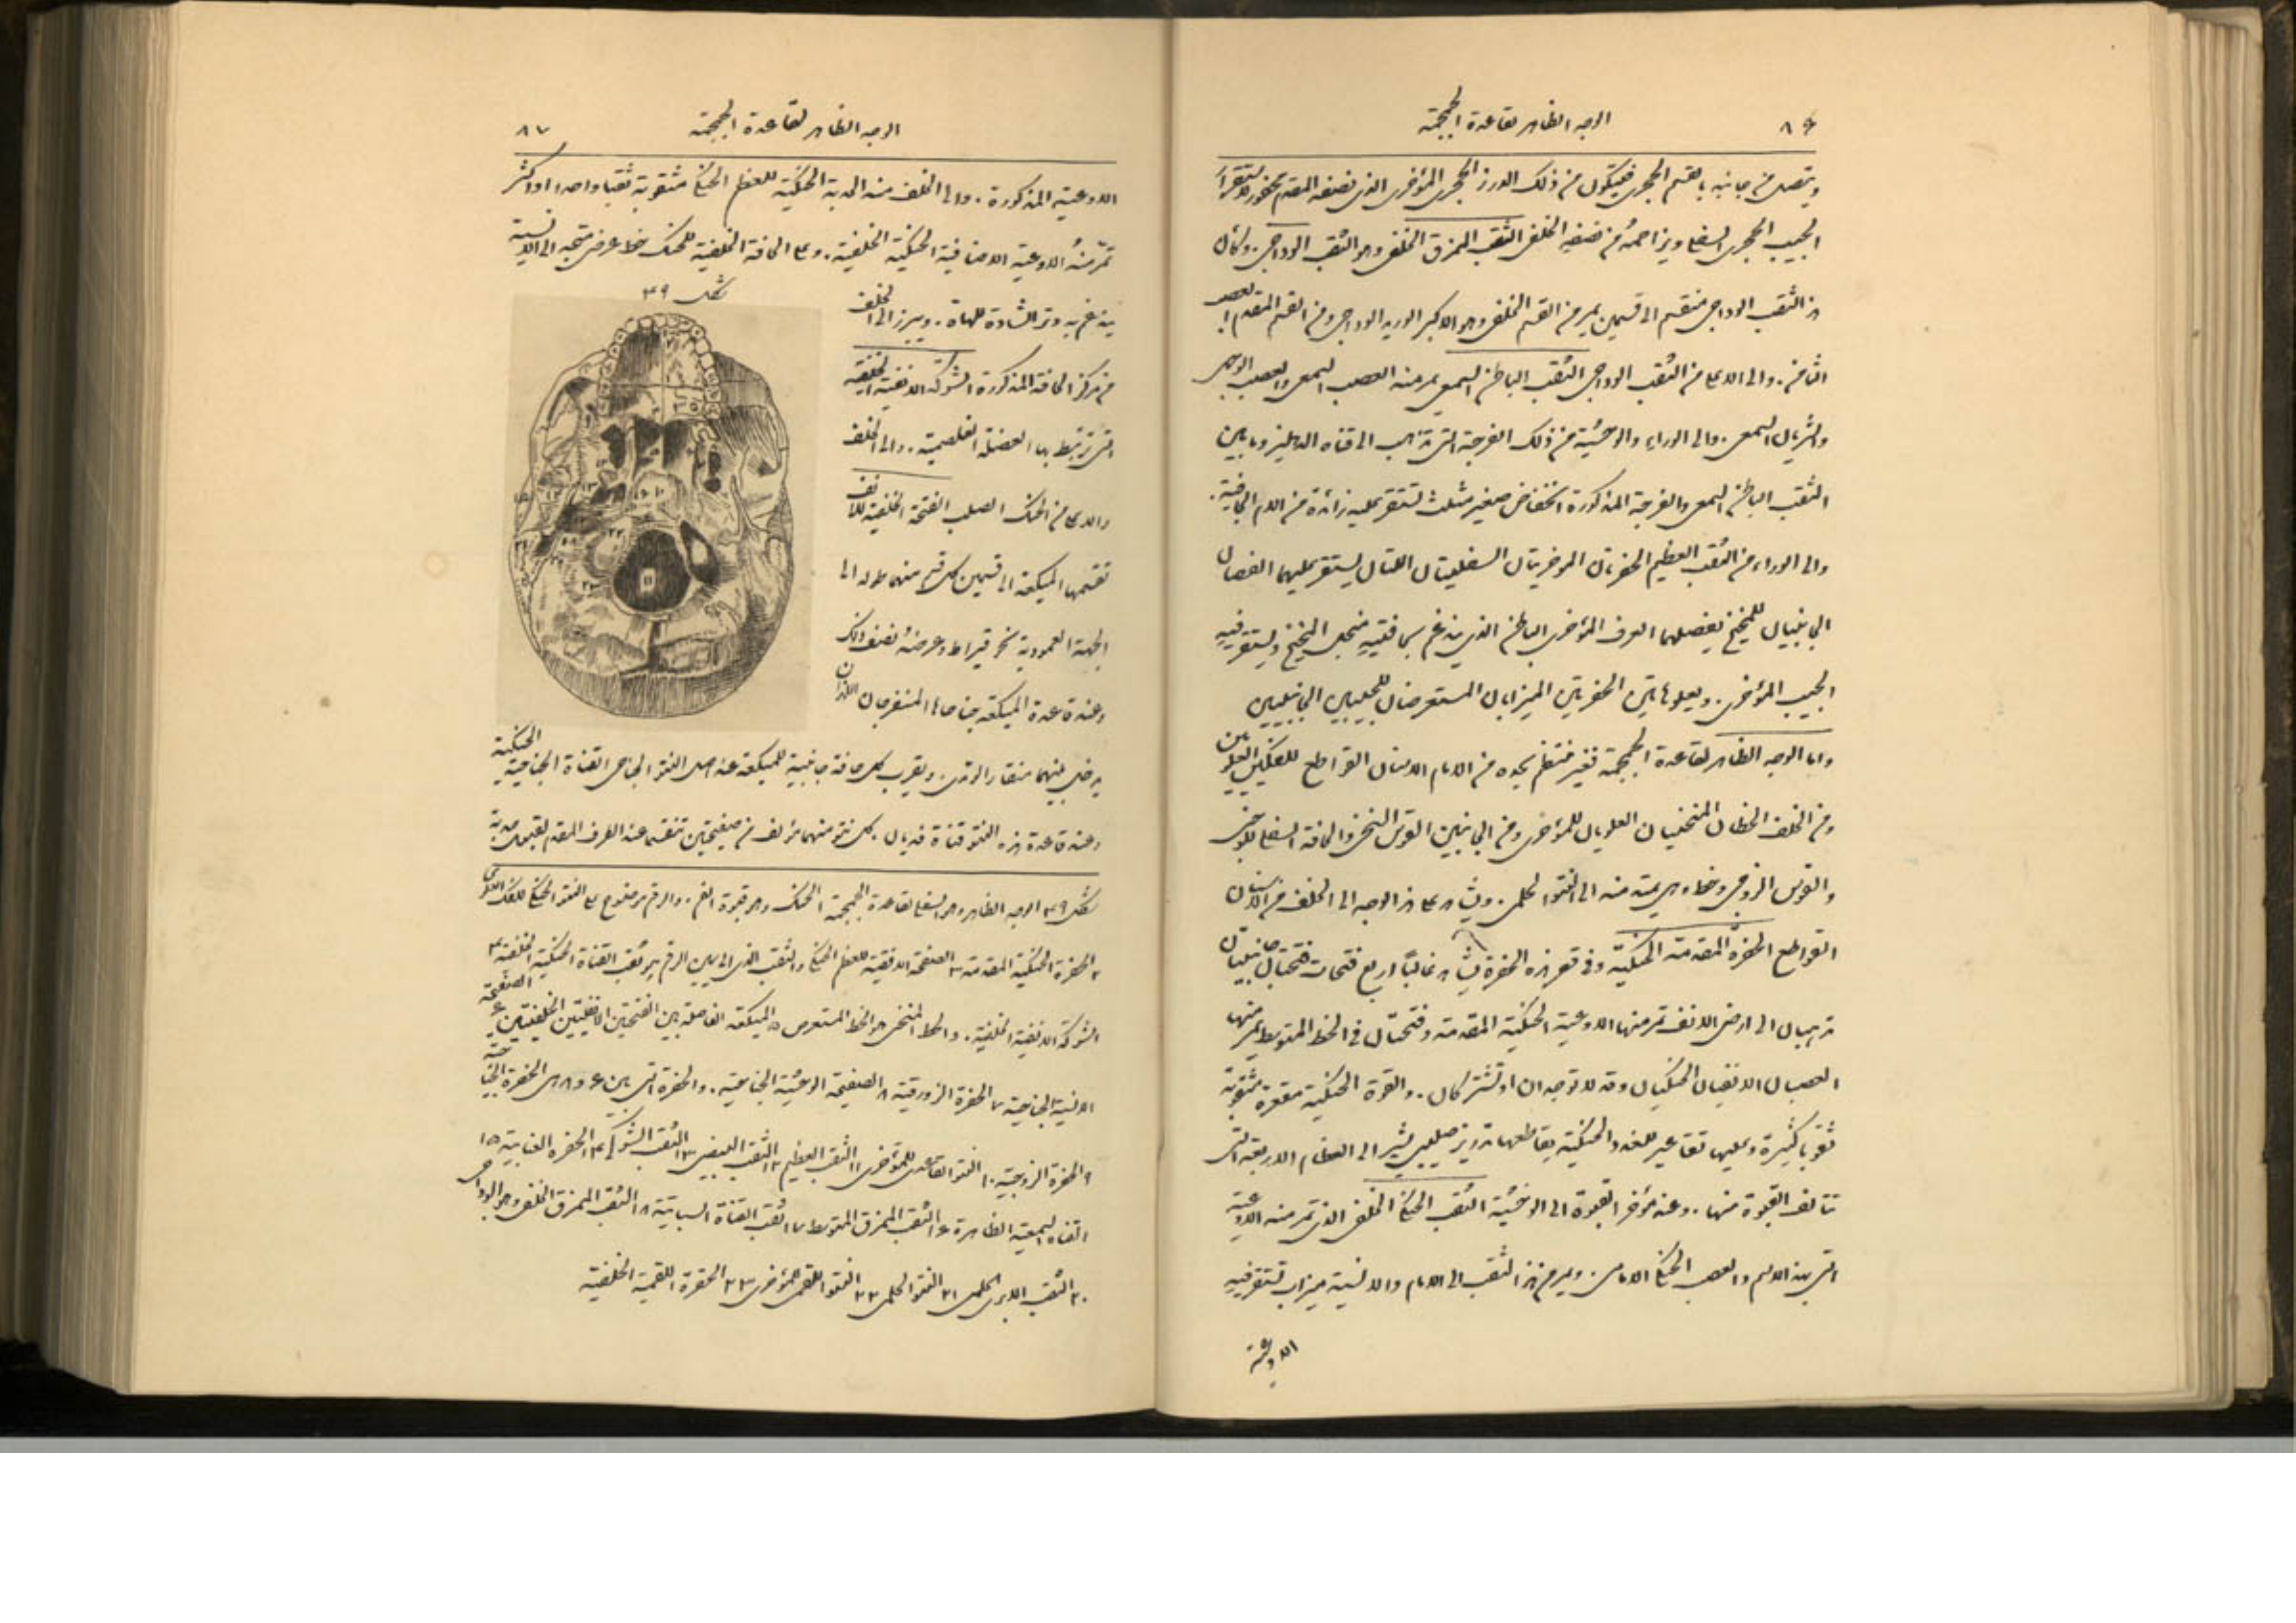 ٨٦
الوجه الظاهر لقاعدة الجمجمة
ويتصل من جانبيه بالقسم الحجري فيتكون من ذلك الدرز الحجري المؤخري الذي نصفه المقدم محفور لاستقرار
الجيب الحجري السفلي ويزاحمه من نصفه الخلفي الثقب الممزق الخلفي وهو الثقب الوداجي. وكان
هذا الثقب الوداجي منقسم الى قسمين يمر من القسم الخلفي وهو الاكبر الوريد الوداجي ومن القسم المقدم العصب
الثامن. والى الاعلى من الثقب الوداجي الثقب الباطن السمعي يمر منه العصب السمعي والعصب الوجهي
والشريان السمعي. والى الوراء والوحشية من ذلك الفرجة التي تذهب الى قناة الدهليز وما بين
الثقب الباطن السمعي والفرجة المذكورة انخفاض صغير مثلث تستقر عليه زائدة من الام الجافية.
والى الوراء من الثقب العظيم الحفرتان الموخريتان السفليتان اللتان يستقر عليهما الفصان
الجانبيان للمخيخ يفصلهما العرف المؤخري الباطن الذي يندغم بحافتيه منجل المخيخ ويستقر فيه
الجيب المؤخري. ويعلو هاتين الحفرتين الميزابان المستعرضان للجيبين الجانبيين
واما الوجه الظاهر لقاعدة الجمجمة فغير منتظم يحده من الامام الاسنان القواطع للفكين العلويين
ومن الخلف الخطان المنحنيان العلويان للمؤخري ومن الجانبين القوس السنخي والحافة السفلى للوجني
والقوس الزوجي وخط وهمي يمتد منه الى النتوء الحلمي. ويشاهد على هذا الوجه الى الخلف من الاسنان
القواطع الحفرة المقدمة الحنكية وفي قعر هذه الحفرة يشاهد غالبًا اربع فتحات فتحتان جانبيتان
تذهبان الى ارض الانف تمر منها الاوعية الحنكية المقدمة وفتحتان في الخط المتوسط يمر منها
العصبان الانفيان الحنكيان وقد لا توجدان او تشتركان. والقبوة الحنكية مقعرة مثقوبة
ثقوبا كثيرة وعليها تقاعير للغدد الحنكية يقاطعها تدريز صليبي يشير الى العظام الاربعة التي
تتالف القبوة منها. وعند مؤخر القبوة الى الوحشية الثقب الحنكي الخلفي الذي تمر منه الاوعية
التي بهذا الاسم والعصب الحنكي الامامي. ويرى من هذا الثقب الى الامام والانسية ميزاب تستقر فيه
الاوعية
الوجه الظاهر لقاعدة الجمجمة
٨٧
الاوعية المذكورة. والى الخلف منه الحدبة الحنكية للعظم الحنكي مثقوبة ثقبا واحدا او اكثر
تمر منه الاوعية الاضافية الحنكية الخلفية. وعلى الحافة الخلفية للحنك خط عرضي متجه الى الانسية
يندغم به وتر الشادة للهاة. ويبرز الى الخلف
من مركز الحافة المذكورة الشوكة الانفية الخلفية
التي ترتبط بها العضلة الغلصمية. والى الخلف
والاعلى من الحنك الصلب الفتحة الخلفية للانف
تقسمها الميكعة الى قسمين كل قسم منهما طوله الى
الجهة العمودية نحو قيراط وعرضه نصف ذلك
وعند قاعدة الميكعة جناحاها المنفرجان اللذان
يدخل بينهما منقار الوتدي. ويقرب كل حافة جانبية للميكعة عند اصل النتوء الجناحي القناة الجناحية الحنكية
وعند قاعدة هذه النتوء قناة فديان. كل نتوء منهما مؤلف من صفيحتين تنقسم عند الطرف المقدم لقبول حدبة
شكل ٣٩
شكل ٣٩ الوجه الظاهر وهو السفلي لقاعدة الجمجمة ١ الحنك وهو قبوة الفم. والرقم موضوع على النتوء الحنكي للفك العلوي
٢ الحفرة الحنكية المقدمة ٣ الصفيحة الافقية للعظم الحنكي والثقب الذي الى يمين الرقم هو ثقب القناة الحنكية الخلفية ٤
الشوكة الانفية الخلفية. والخط المنحني هو الخط المستعرض ٥ الميكعة الفاصلة بين الفتحتين الانفيتين الخلفيتين ٦ الصفيحة
الانسية الجناحية ٧ الحفرة الزورقية ٨ الصفيحة الوحشية الجناحية. والحفرة التي بين ٦ و ٨ هي الحفرة الجناحية
٩ الحفرة الزوجية ١٠ النتوء القاعدي للمؤخري ١١ الثقب العظيم ١٢ الثقب البيضي ١٣ الثقب الشوكي ١٤ الحفرة العنابية ١٥
القناة السمعية الظاهرة ١٦ الثقب الممزق المتوسط ١٧ ثقب القناة السباتية ١٨ الثقب الممزق الخلفي وهو الوداجي
٢٠ الثقب الابري الحلمي ٢١ النتوء الحلمي ٢٢ النتوء اللقمي للمؤخري ٢٣ الحفرة اللقمية الخلفية